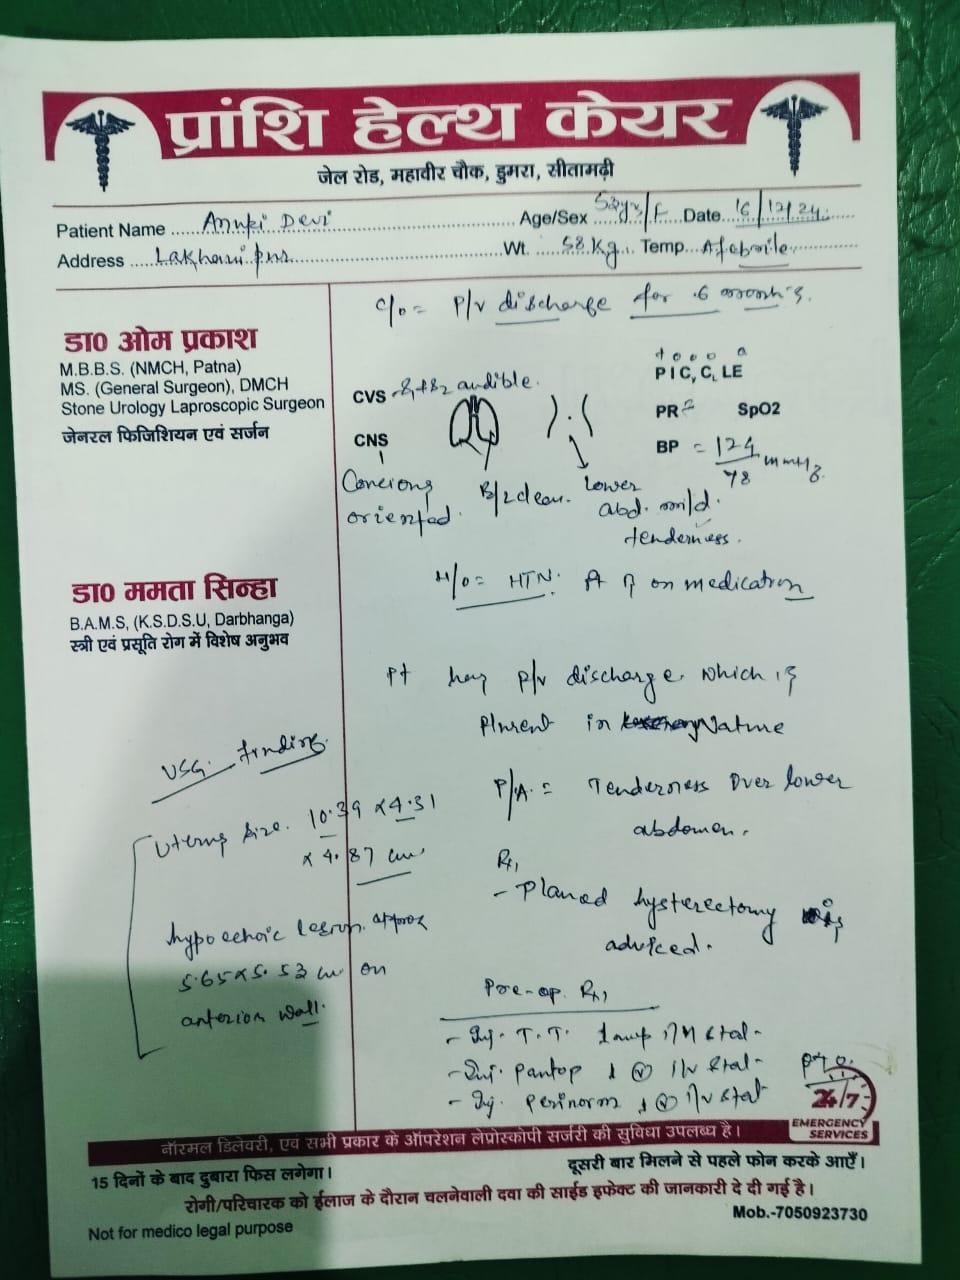 प्रांशि हेल्थ केयर
जेल रोड, महावीर चौक, डुमरा, सीतामढ़ी
Patient Name Anuki Devi Age/Sex 52yrs/F Date 16/12/24
Address Wt. 58 Kg Temp Afebrile
C/o = P/v discharge for 6 months.
डा० ओम प्रकाश
M.B.B.S. (NMCH, Patna)
MS. (General Surgeon), DMCH
Stone Urology Laproscopic Surgeon
जेनरल फिजिशियन एवं सर्जन
CVS S1+S2 audible.
CNS
Concious
oriented.
B/L clear.
Lower
abd. mild
tenderness.
+ o o o o
P I C, C, LE
PR SpO2
BP = 124/78 mmHg.
H/o = HTN. on medication
डा० ममता सिन्हा
B.A.M.S, (K.S.D.S.U, Darbhanga)
स्त्री एवं प्रसूति रोग में विशेष अनुभव
Pt has P/v discharge which is
in Nature
P/A = Tenderness Over lower
abdomen.
Rx,
- Planed hysterectomy is
adviced.
USG. finding.
Uterus size. 10.39 x 4.31
x 4.87 cm
hypoechoic lesion approx
5.65 x 5.53 cm on
anterior wall.
Pre-op. Rx,
- Inj. T.T. 1 amp I/M stat-
- Inj. Pantop 1 (V) I/v stat-
- Inj. Perinorm 1 (V) I/v stat
PTO.
24/7
EMERGENCY
SERVICES
नॉरमल डिलेवरी, एवं सभी प्रकार के ऑपरेशन लेप्रोस्कोपी सर्जरी की सुविधा उपलब्ध है।
15 दिनों के बाद दुबारा फिस लगेगा।
दूसरी बार मिलने से पहले फोन करके आएँ।
रोगी/परिचारक को ईलाज के दौरान चलनेवाली दवा की साईड इफेक्ट की जानकारी दे दी गई है।
Not for medico legal purpose
Mob.-7050923730